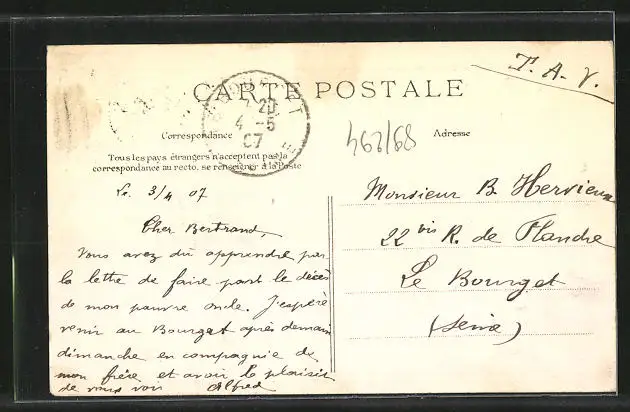 T. A. V.
CARTE POSTALE
7-20
4-5
07
463/68
Correspondance
Adresse
Tous les pays étrangers n'acceptent pas la
correspondance au recto, se renseigner à la Poste
Le 3/4 07
Cher Bertrand,
Vous avez dû apprendre par
la lettre de faire part le décès
de mon pauvre oncle. J'espère
venir au Bourget après demain
dimanche en compagnie de
mon frère et avoir le plaisir
de vous voir Alfred
Monsieur B. Hervieux
22 bis R. de Flandre
Le Bourget
(Seine)